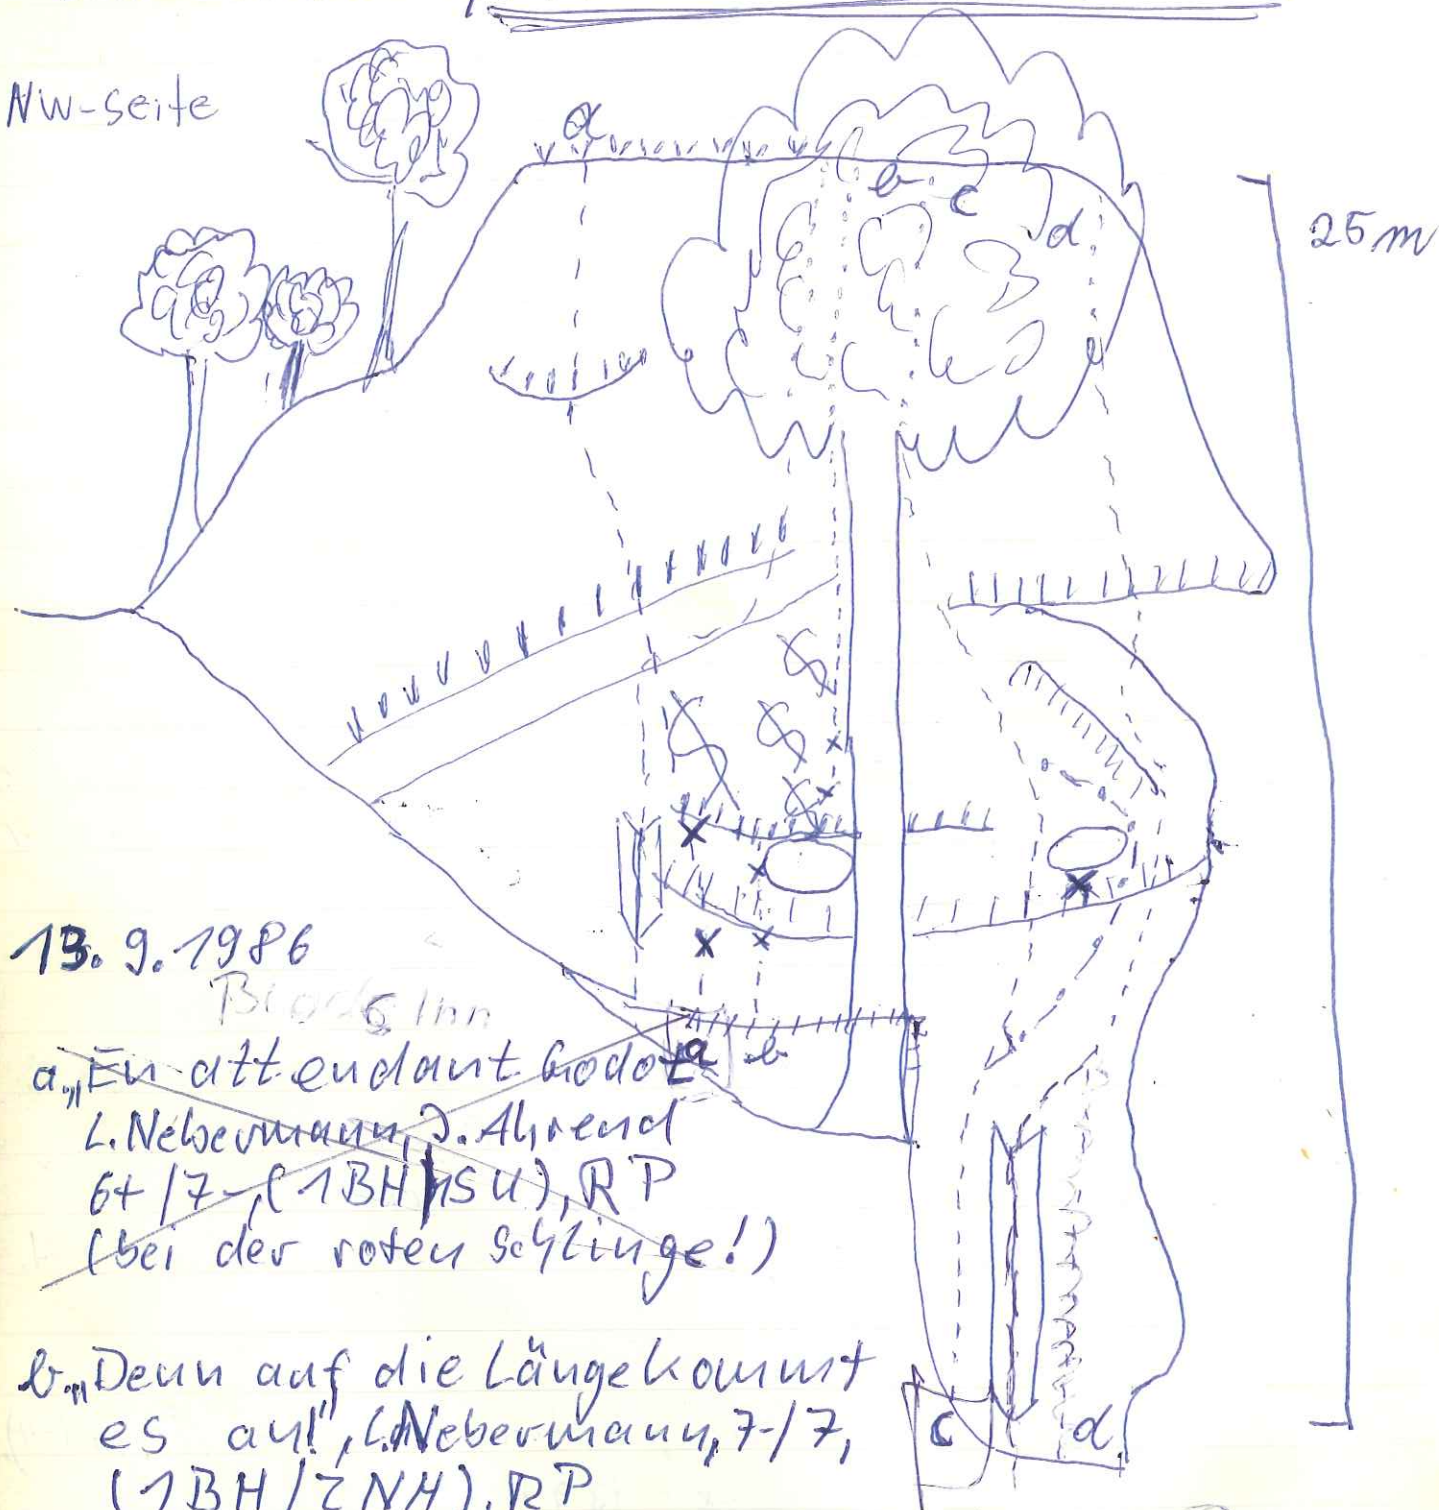 NW-Seite
a
b
c
d
25 m
13. 9. 1986
a „En attendant Godot
L. Nebermann, J. Ahrend
6+/7-, (1BH/1SU), RP
(bei der roten Schlinge!)
a b
b „Denn auf die Länge kommt
es an!", L. Nebermann, 7-/7,
(1BH/2NH), RP
c d